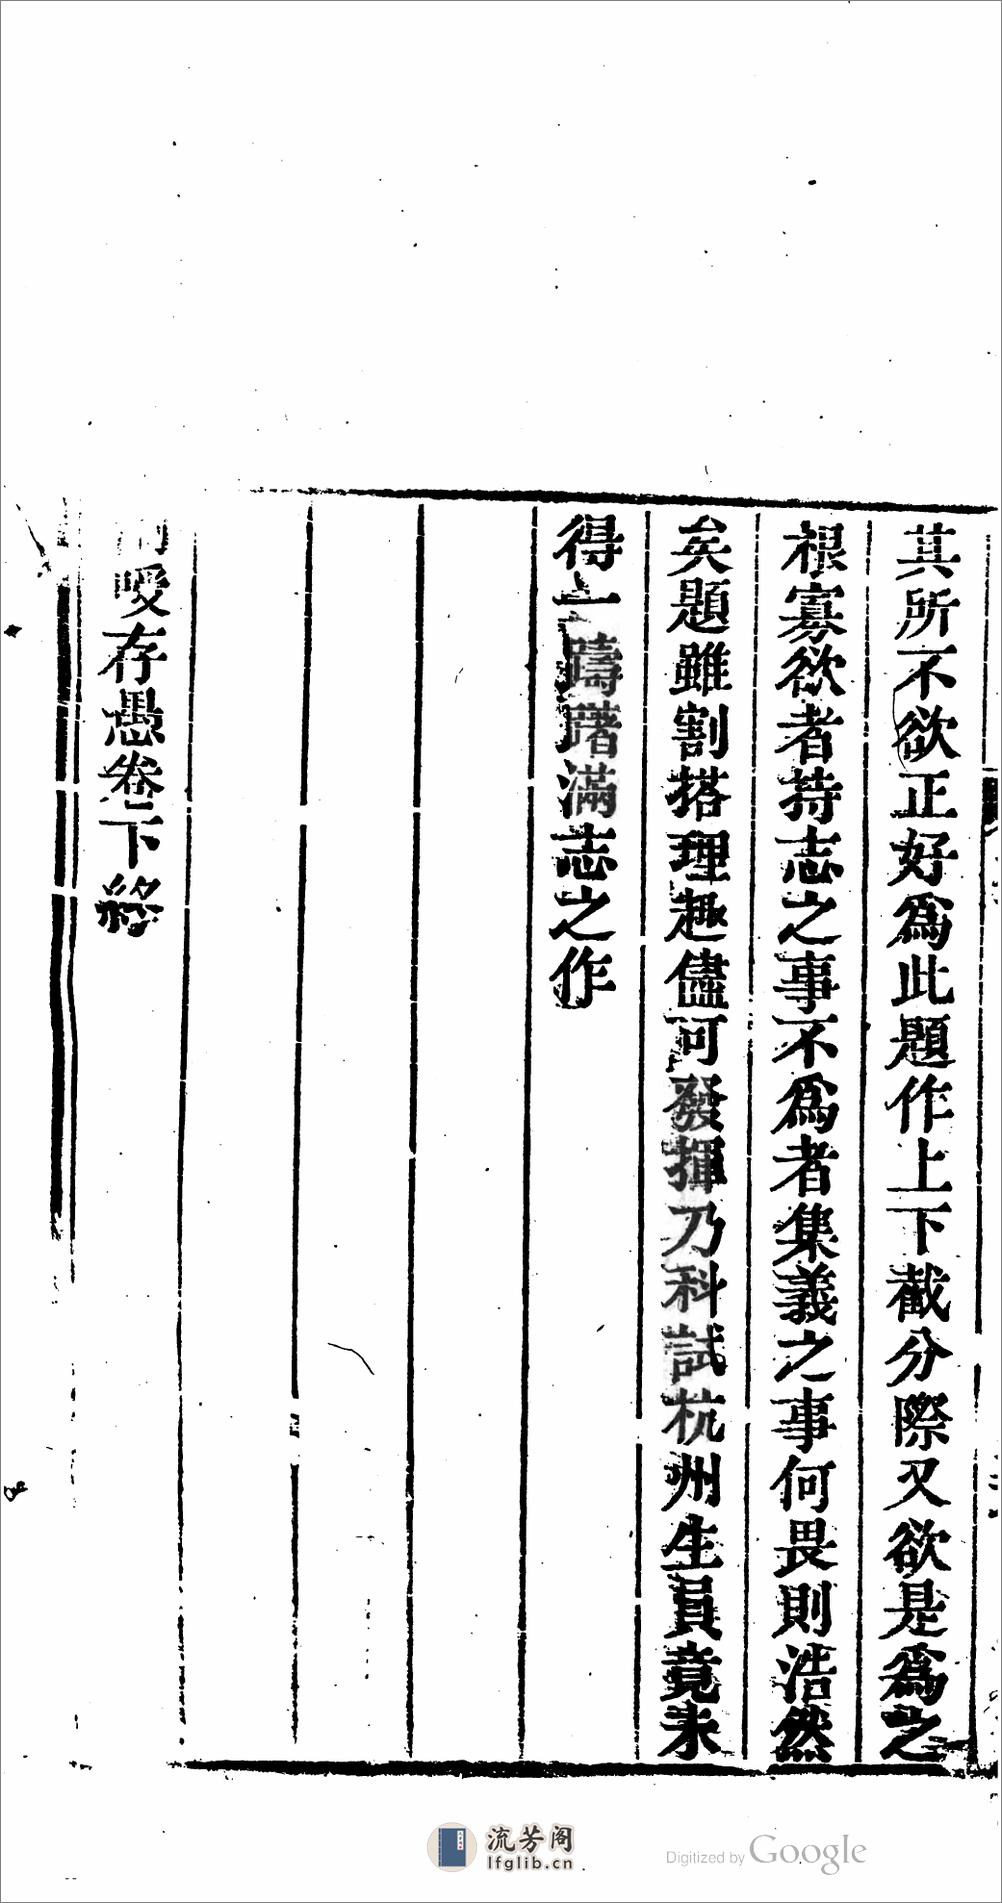 其所不欲正好爲此題作上下截分際又欲是爲之
根寡欲者持志之事不爲者集義之事何畏則浩然
矣題雖割搭理趣儘可發揮乃科試杭州生員竟未
得一躊躇滿志之作
曖存愚卷下終
流芳阁
lfglib.cn
Digitized by Google